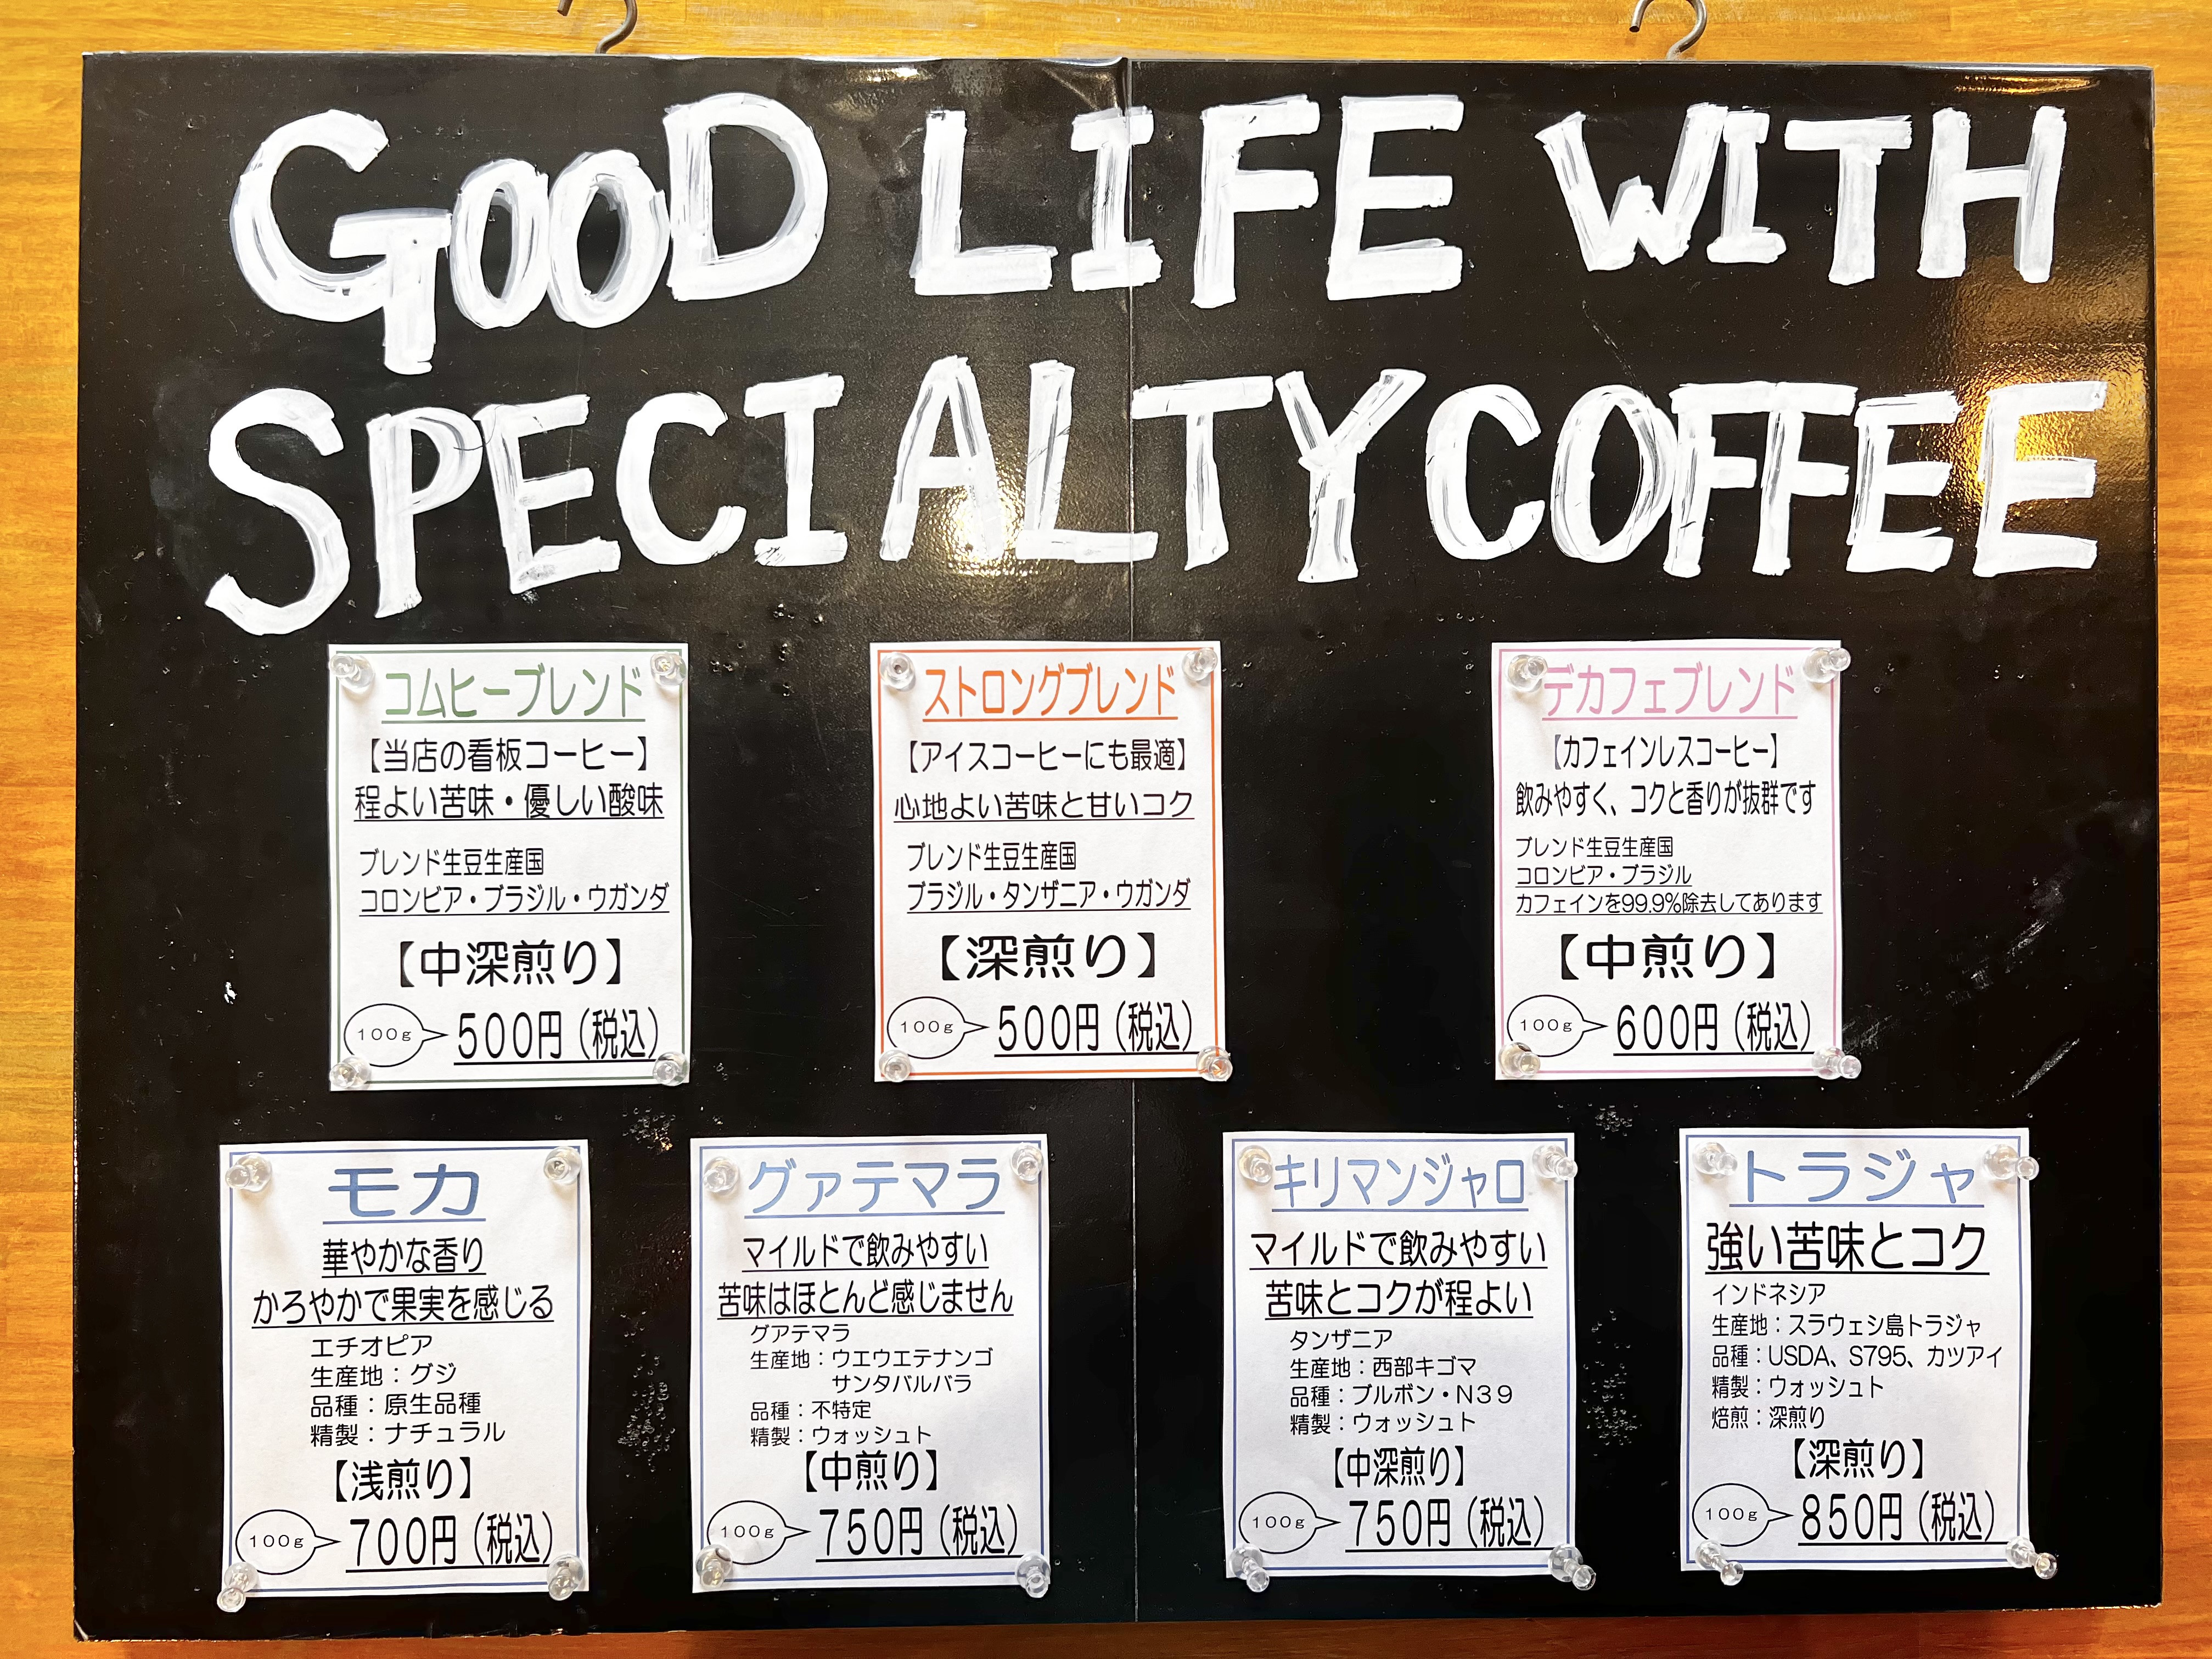 GOOD LIFE WITH
SPECIALTY COFFEE
コムヒーブレンド
【当店の看板コーヒー】
程よい苦味・優しい酸味
ブレンド生豆生産国
コロンビア・ブラジル・ウガンダ
【中深煎り】
100g 500円(税込)
ストロングブレンド
【アイスコーヒーにも最適】
心地よい苦味と甘いコク
ブレンド生豆生産国
ブラジル・タンザニア・ウガンダ
【深煎り】
100g 500円(税込)
デカフェブレンド
【カフェインレスコーヒー】
飲みやすく、コクと香りが抜群です
ブレンド生豆生産国
コロンビア・ブラジル
カフェインを99.9%除去してあります
【中煎り】
100g 600円(税込)
モカ
華やかな香り
かろやかで果実を感じる
エチオピア
生産地:グジ
品種:原生品種
精製:ナチュラル
【浅煎り】
100g 700円(税込)
グァテマラ
マイルドで飲みやすい
苦味はほとんど感じません
グアテマラ
生産地:ウエウエテナンゴ
サンタバルバラ
品種:不特定
精製:ウォッシュト
【中煎り】
100g 750円(税込)
キリマンジャロ
マイルドで飲みやすい
苦味とコクが程よい
タンザニア
生産地:西部キゴマ
品種:ブルボン・N39
精製:ウォッシュト
【中深煎り】
100g 750円(税込)
トラジャ
強い苦味とコク
インドネシア
生産地:スラウェシ島トラジャ
品種:USDA、S795、カツアイ
精製:ウォッシュト
焙煎:深煎り
【深煎り】
100g 850円(税込)